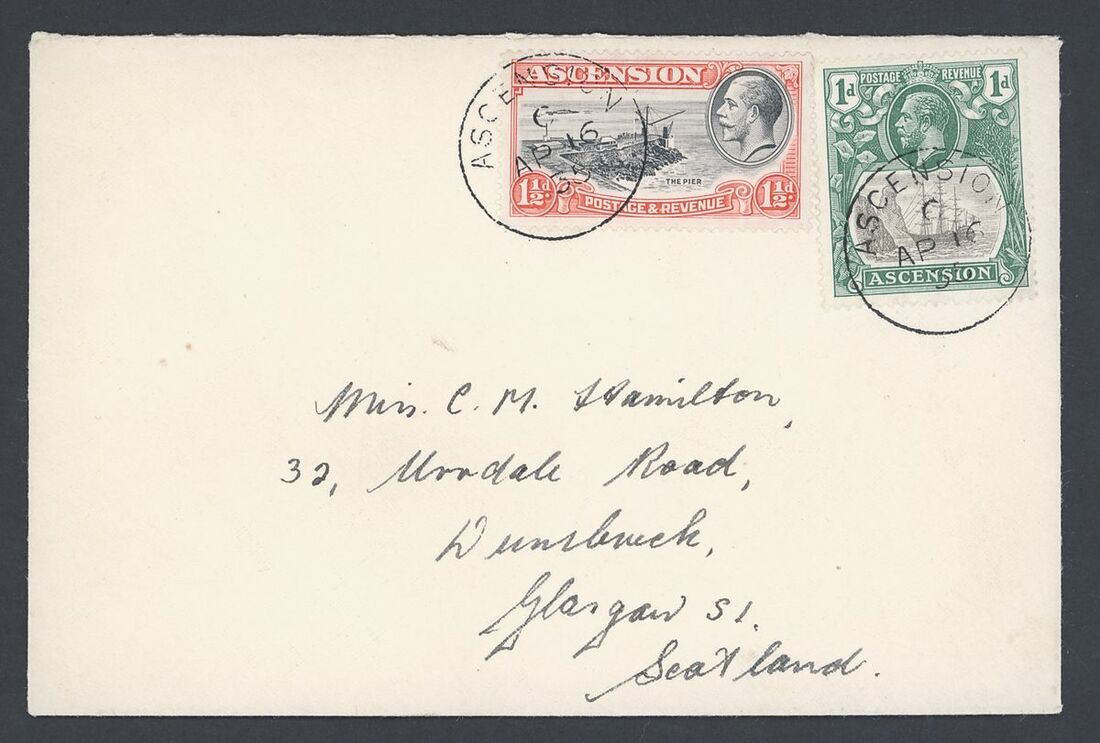 ASCENSION
THE PIER
1½d 1½d
POSTAGE & REVENUE
ASCENSION
C
AP 16
35
POSTAGE REVENUE
1d 1d
ASCENSION
ASCENSION
C
AP 16
35
C. M. Hamilton,
32, Road,
Glasgow
Scotland.